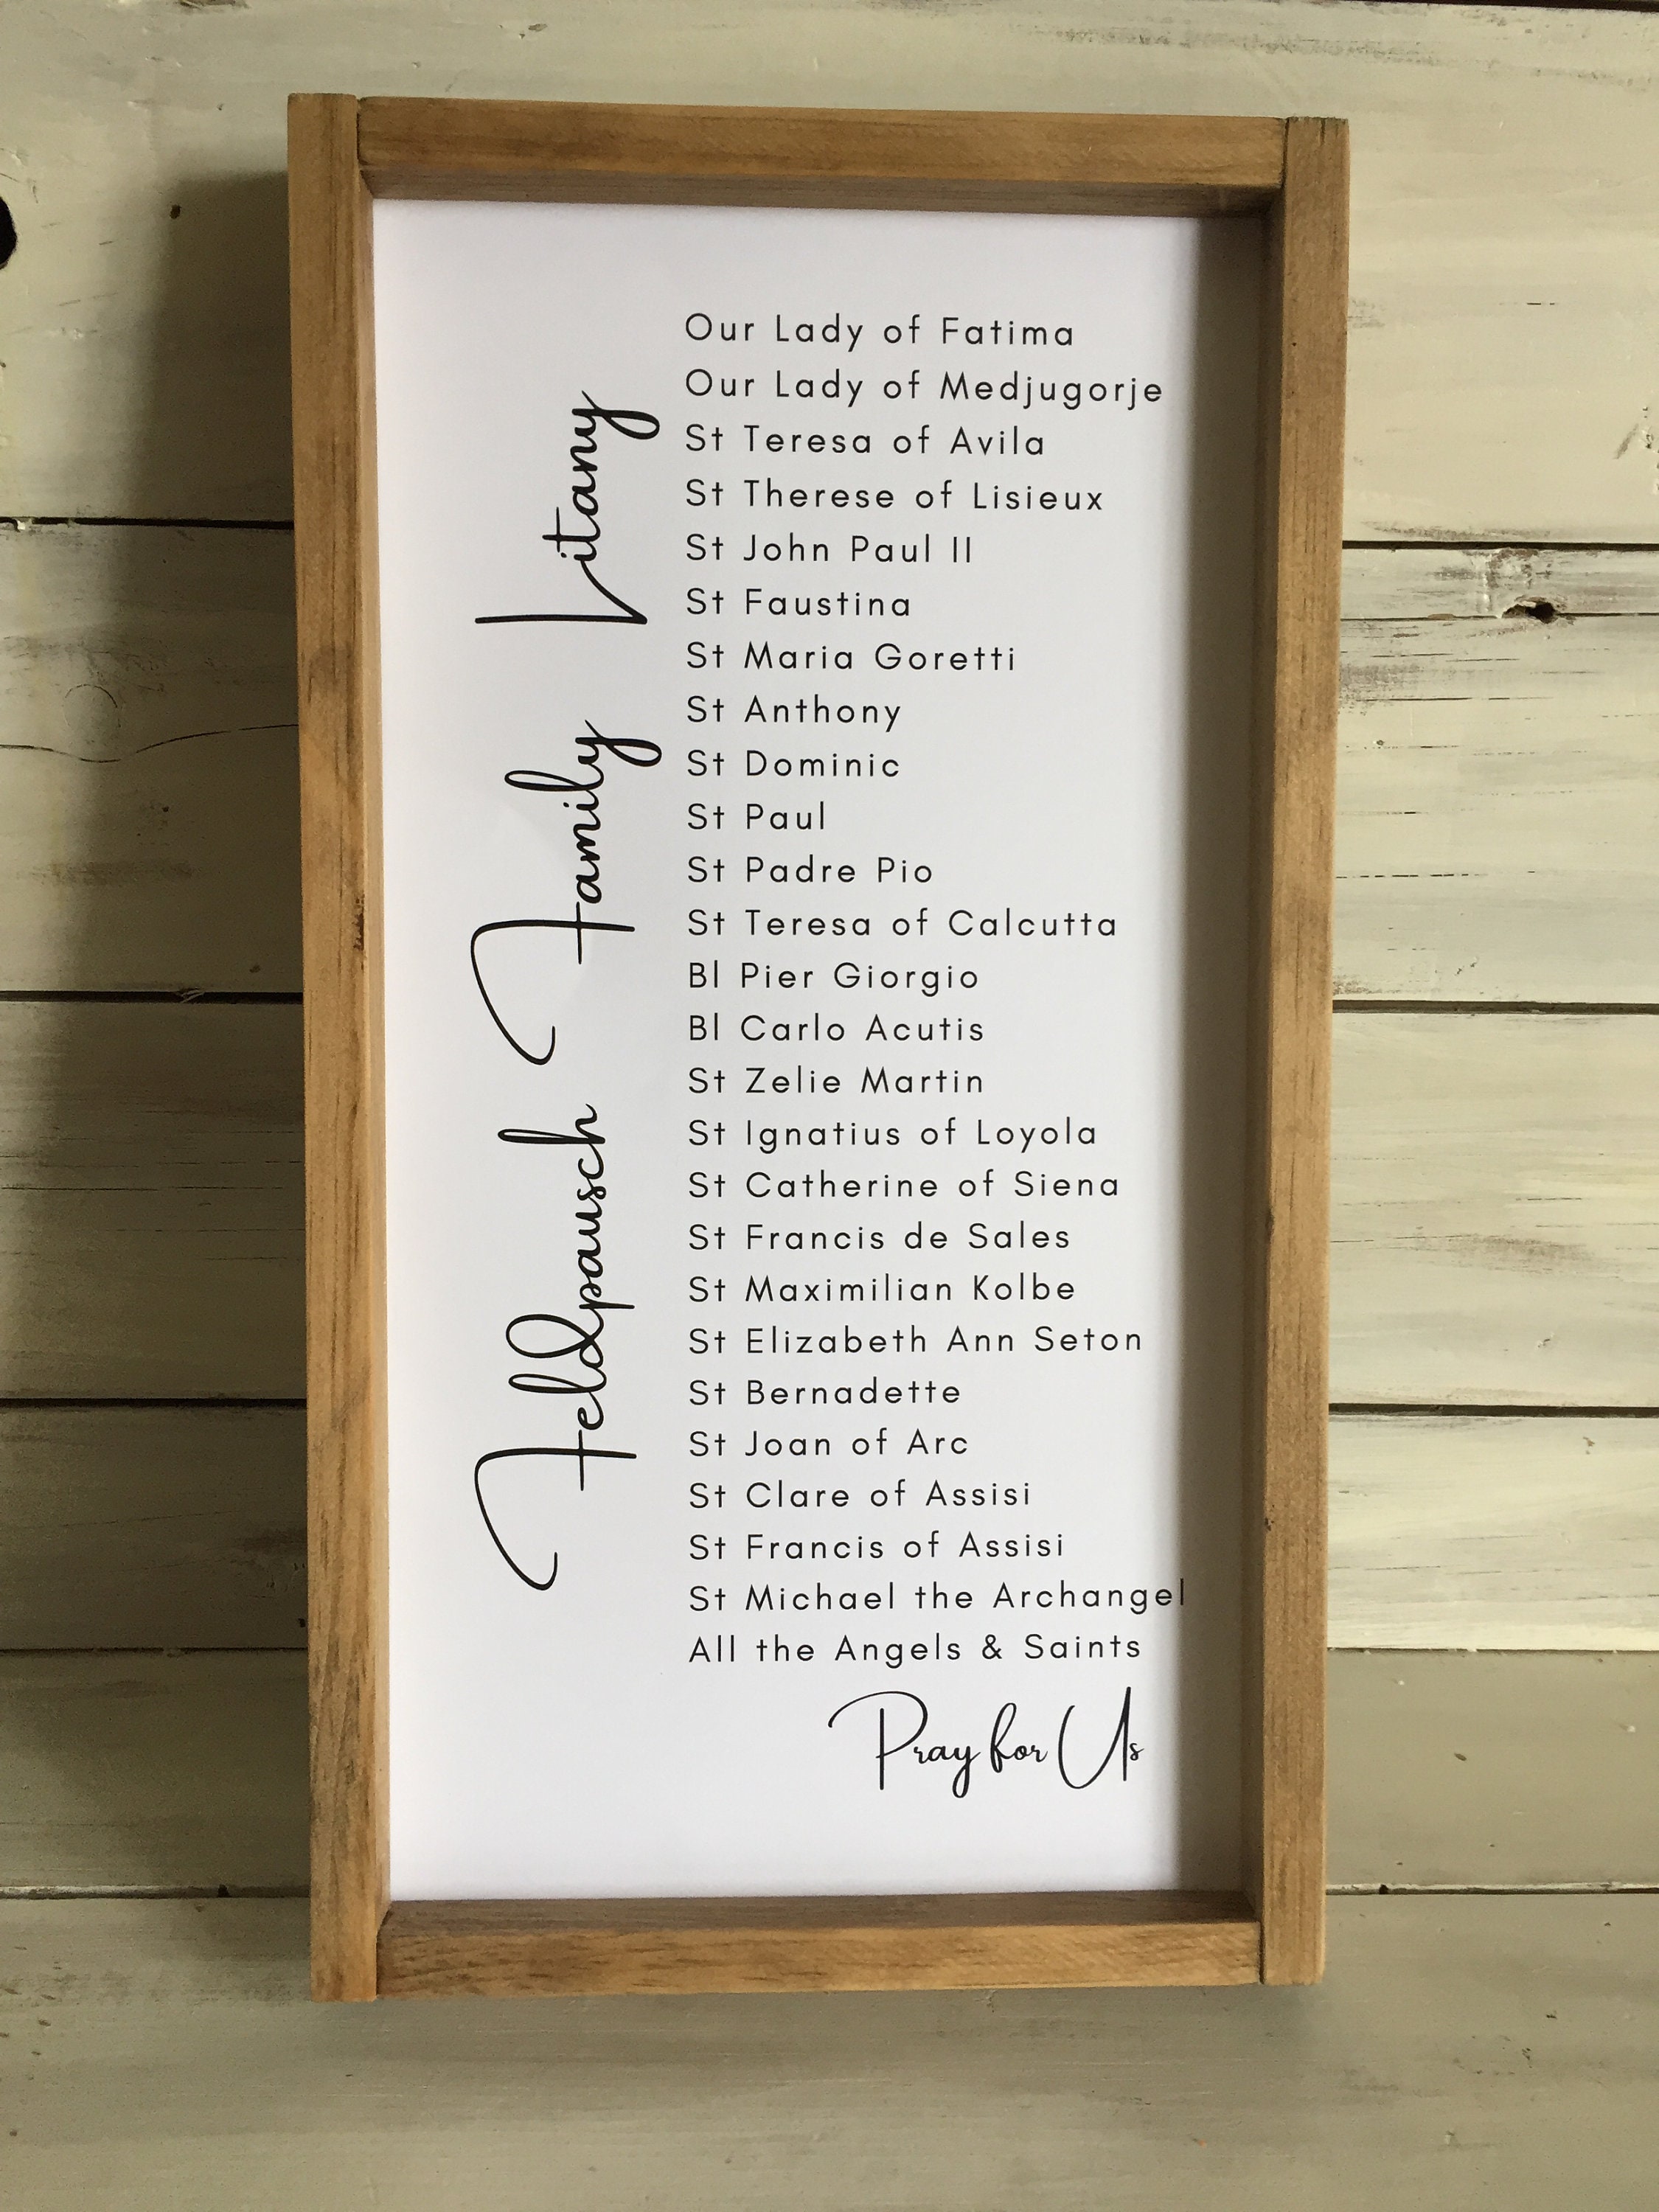 Feldpausch Family Litany
Our Lady of Fatima
Our Lady of Medjugorje
St Teresa of Avila
St Therese of Lisieux
St John Paul II
St Faustina
St Maria Goretti
St Anthony
St Dominic
St Paul
St Padre Pio
St Teresa of Calcutta
Bl Pier Giorgio
Bl Carlo Acutis
St Zelie Martin
St Ignatius of Loyola
St Catherine of Siena
St Francis de Sales
St Maximilian Kolbe
St Elizabeth Ann Seton
St Bernadette
St Joan of Arc
St Clare of Assisi
St Francis of Assisi
St Michael the Archangel
All the Angels & Saints
Pray for Us